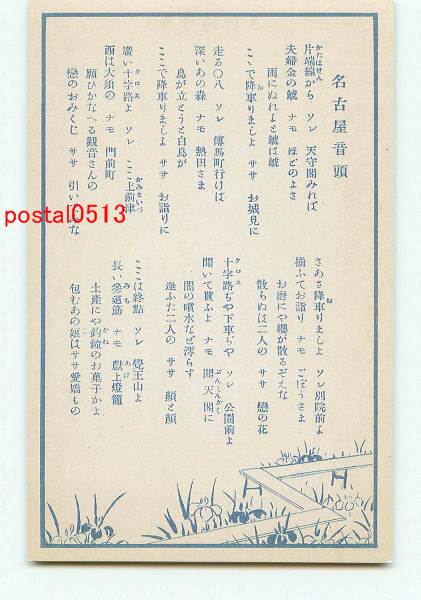 名古屋音頭
片端線から ソレ 天守閣みれば
かたはせん
夫婦金の鯱 ナモ ほどのよさ
雨にぬれよと鯱は鯱
こゝで降車りましよ ササ お城見に
走る〇八 ソレ 傳馬町行けば
深いあの森 ナモ 熱田さま
鳥が立とうと白鳥が
ここで降車りましよ ササ お詣りに
廣い十字路よ ソレ ここ上前津
クロス
かみまいづ
西は大須の ナモ 門前町
願ひかなへる觀音さんの
戀のおみくじ ササ 引いて
な
さあさ降車りましよ ソレ別院前よ
お
揃ふてお詣り ナモ ごぼうさま
お庭にや櫻が散るぞえな
散らぬは二人の ササ 戀の花
十字路ぢや下車ぢや ソレ 公園前よ
クロス
聞いて貰ふよ ナモ 聞天閣に
ぶんてんかく
闇の噴水なぜ濡らす
逢ふた二人の ササ 顏と顏
ここは終點 ソレ 覺王山よ
長い參道筋 ナモ 獻上燈籠
みち
あげ
土産にや釣鐘のお菓子かよ
かね
包むあの娘はササ愛嬌もの
postal0513